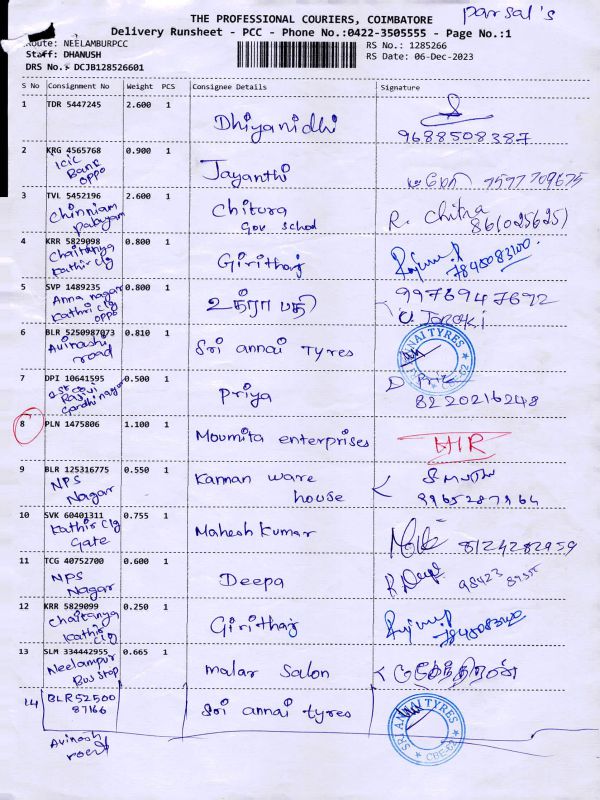 THE PROFESSIONAL COURIERS, COIMBATORE
Parsal's
Delivery Runsheet - PCC - Phone No.:0422-3505555 - Page No.:1
Route: NEELAMBURPCC
RS No.: 1285266
Staff: DHANUSH
RS Date: 06-Dec-2023
DRS No.: DCJB128526601
S No Consignment No Weight PCS Consignee Details Signature
1 TDR 5447245 2.600 1
Dhiyanidhi
9688508387
2 KRG 4565768 0.900 1
ICIC
Bank
OPPO
Jayanthi
3 TVL 5452196 2.600 1
Chinniam
Palayam
Chitura
Gov School
R. Chitra
86(025625)
4 KRR 5829098 0.800 1
Chaitanya
Kathir Clg
Girithaj
7845083100
5 SVP 1489235 0.800 1
Anna nagar
Kathir Clg
OPPO
உத்ரா பதி
9976947692
6 BLR 5250987073 0.810 1
Avinashi
road
Sri annai Tyres
SRI ANNAI TYRES
CBE-62
7 DPI 10641595 0.500 1
Rajivi
Gandhi nagar
Priya
8220216248
8 PLN 1475806 1.100 1
Moumita enterprises
9 BLR 125316775 0.550 1
NPS
Nagar
Kannan ware
house
9965287964
10 SVK 60401311 0.755 1
Kathir Clg
Gate
Mahesh Kumar
8124282959
11 TCG 40752700 0.600 1
NPS
Nagar
Deepa
R. Deepa
12 KRR 5829099 0.250 1
Chaitanya
Kathir
Clg
Girithaj
7845083100
13 SLM 334442955 0.665 1
Neelampur
Bus Stop
malar Salon
14 BLR52500
87166
Avinash
road
Sri annai tyres
SRI ANNAI TYRES
CBE-62